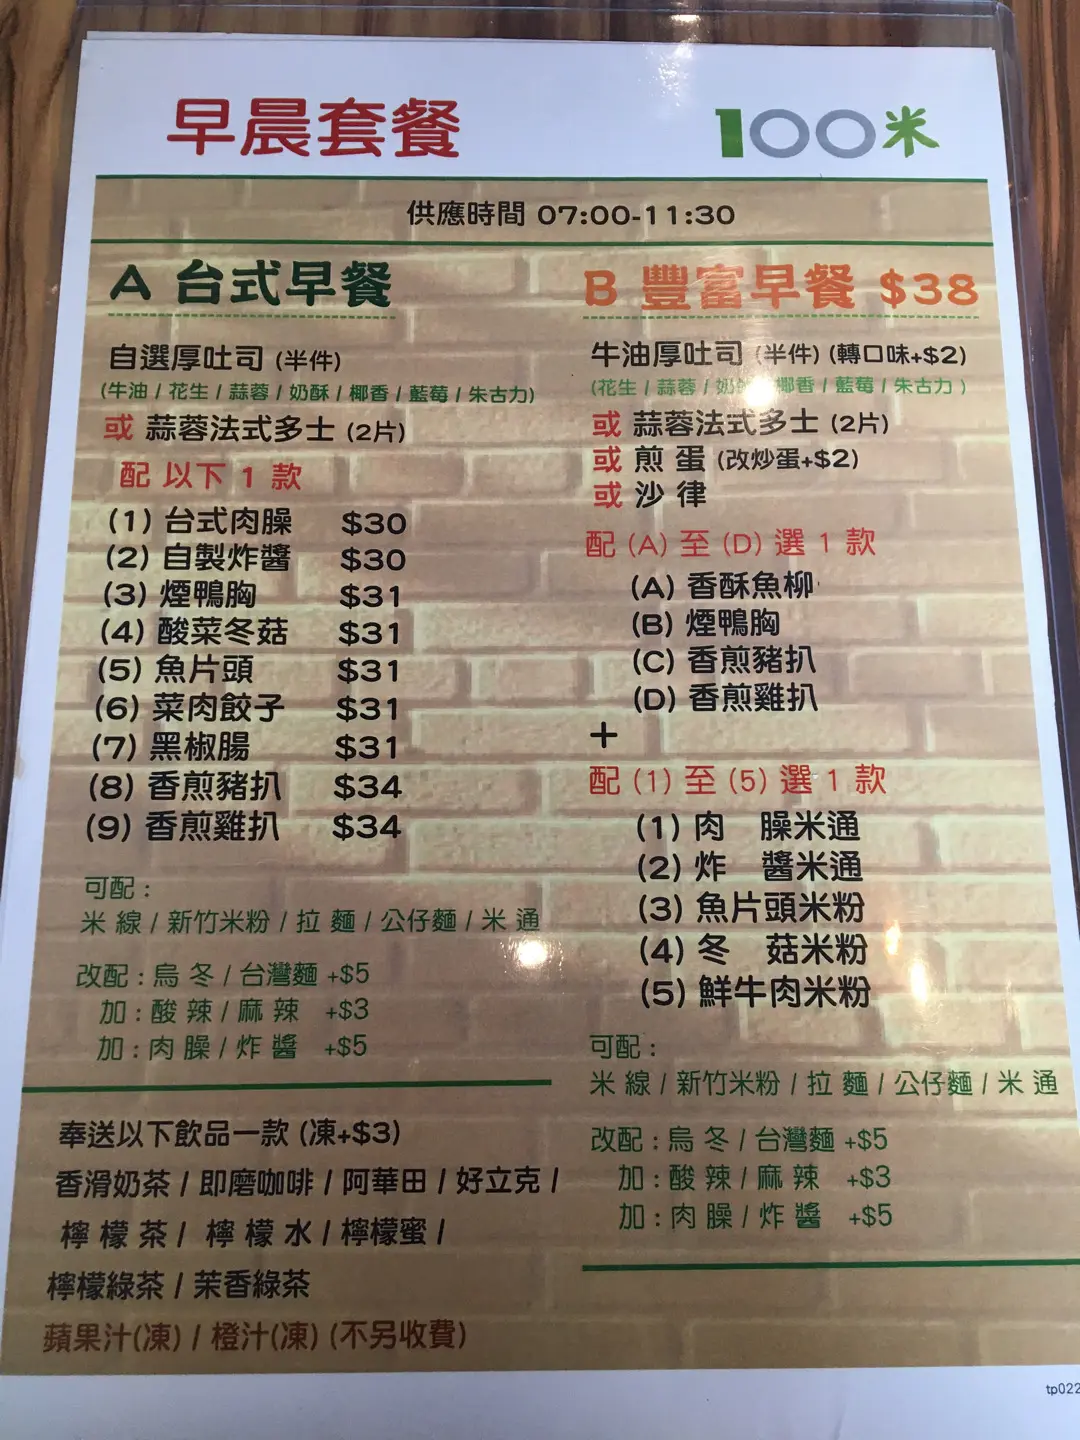 早晨套餐
100米
供應時間 07:00-11:30
A 台式早餐
自選厚吐司 (半件)
(牛油 / 花生 / 蒜蓉 / 奶酥 / 椰香 / 藍莓 / 朱古力)
或 蒜蓉法式多士 (2片)
配 以下 1 款
(1) 台式肉臊 $30
(2) 自製炸醬 $30
(3) 煙鴨胸 $31
(4) 酸菜冬菇 $31
(5) 魚片頭 $31
(6) 菜肉餃子 $31
(7) 黑椒腸 $31
(8) 香煎豬扒 $34
(9) 香煎雞扒 $34
可配 :
米 線 / 新竹米粉 / 拉 麵 / 公仔麵 / 米 通
改配 : 烏 冬 / 台灣麵 +$5
加 : 酸 辣 / 麻 辣 +$3
加 : 肉 臊 / 炸 醬 +$5
奉送以下飲品一款 (凍+$3)
香滑奶茶 / 即磨咖啡 / 阿華田 / 好立克 /
檸 檬 茶 / 檸 檬 水 / 檸檬蜜 /
檸檬綠茶 / 茉香綠茶
蘋果汁(凍) / 橙汁(凍) (不另收費)
B 豐富早餐 $38
牛油厚吐司 (半件) (轉口味+$2)
(花生 / 蒜蓉 / 奶 / 椰香 / 藍莓 / 朱古力 )
或 蒜蓉法式多士 (2片)
或 煎 蛋 (改炒蛋+$2)
或 沙 律
配 (A) 至 (D) 選 1 款
(A) 香酥魚柳
(B) 煙鴨胸
(C) 香煎豬扒
(D) 香煎雞扒
+
配 (1) 至 (5) 選 1 款
(1) 肉 臊米通
(2) 炸 醬米通
(3) 魚片頭米粉
(4) 冬 菇米粉
(5) 鮮牛肉米粉
可配 :
米 線 / 新竹米粉 / 拉 麵 / 公仔麵 / 米 通
改配 : 烏 冬 / 台灣麵 +$5
加 : 酸 辣 / 麻 辣 +$3
加 : 肉 臊 / 炸 醬 +$5
tp022